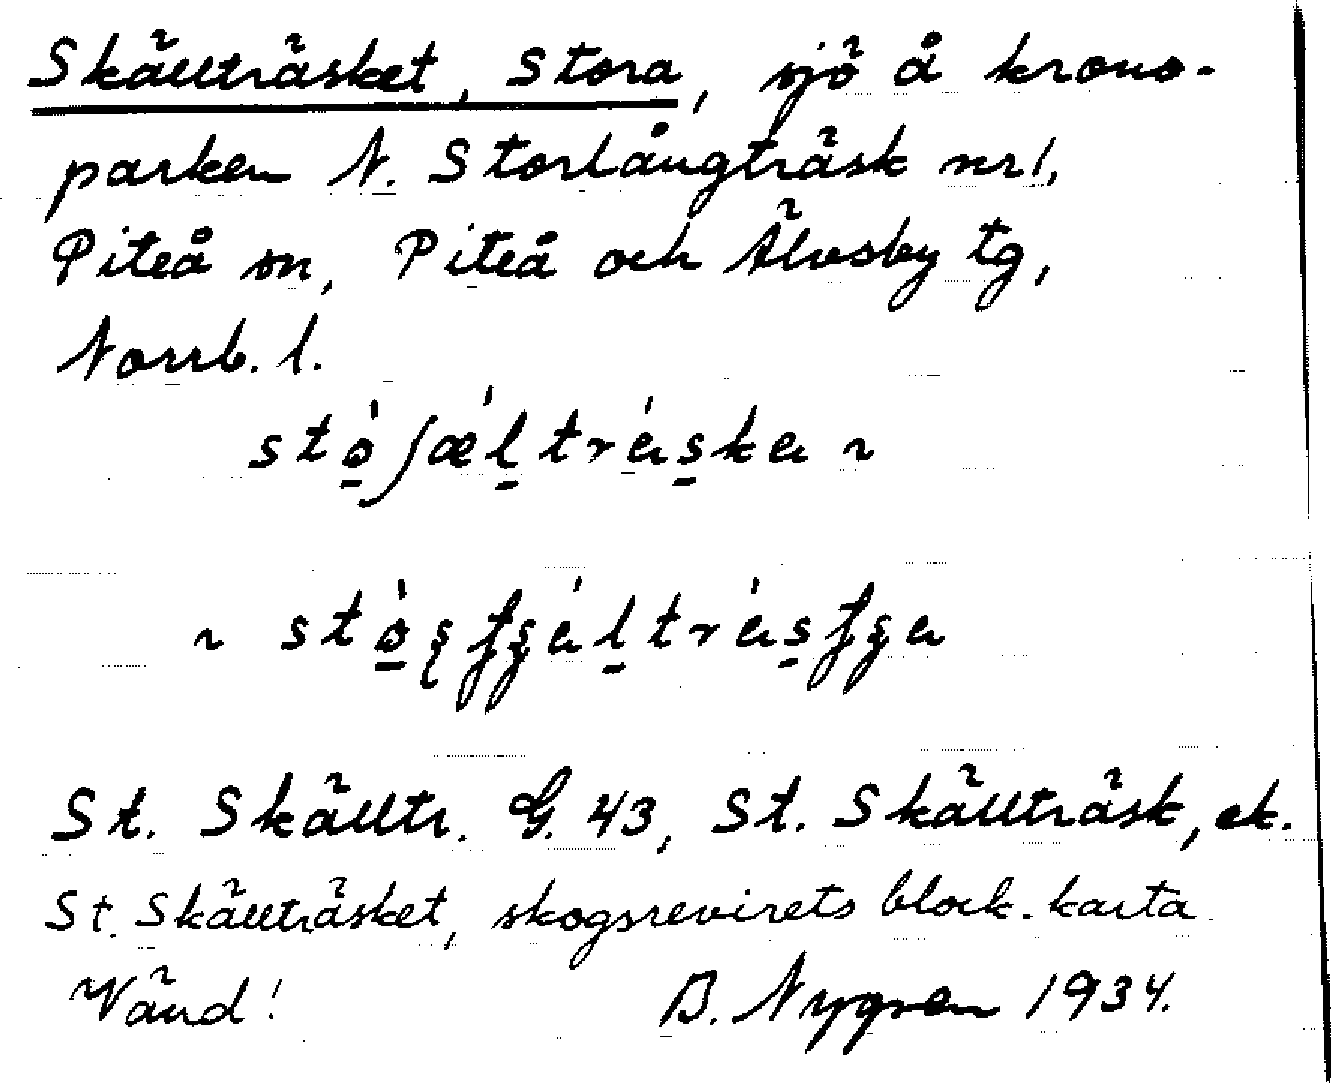 Skällträsket, Stora, sjö å krono-
parken N. Storlångträsk nr 1,
Piteå sn, Piteå och Älvsby tg,
Norrb. l.
St. Skälltr. G. 43, St. Skällträsk, ek.
St. Skällträsket, skogsrevirets block-karta
Vänd! B. Nygren 1934.